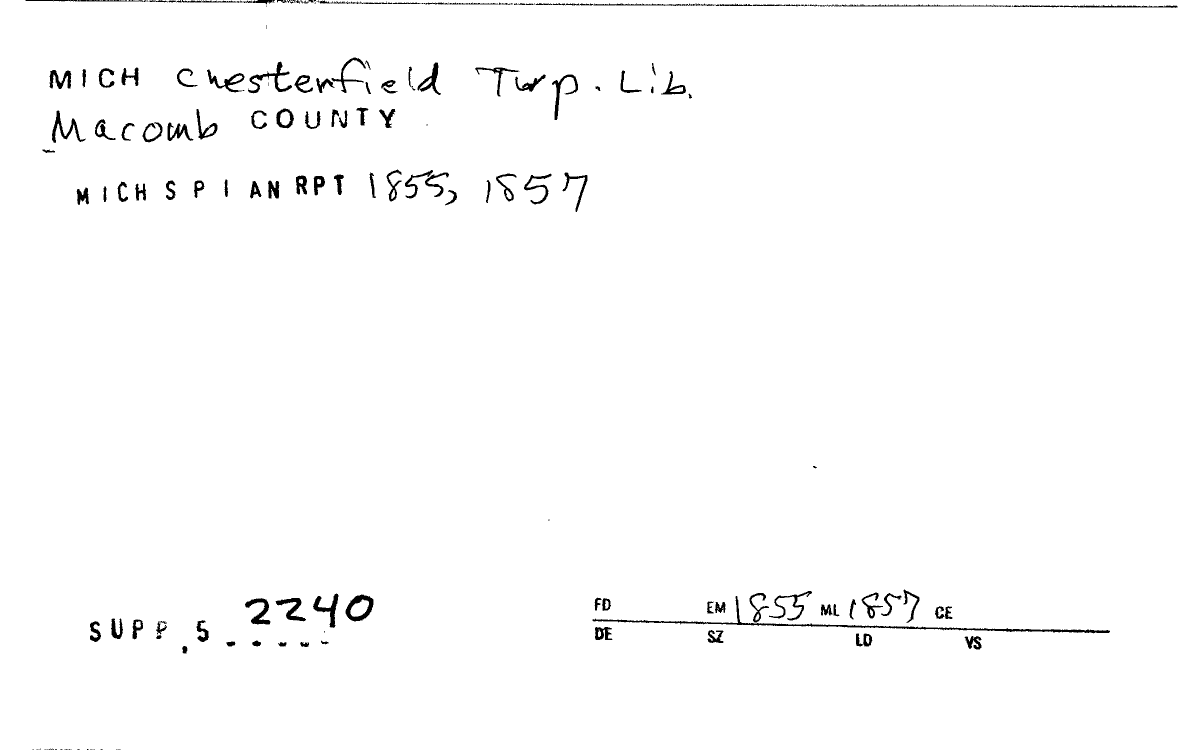 MICH Chesterfield Twp. Lib.
Macomb COUNTY
MICH S P I AN RPT 1855, 1857
SUPP, 5 2240
FD EM 1855 ML 1857 CE
DE SZ LD VS